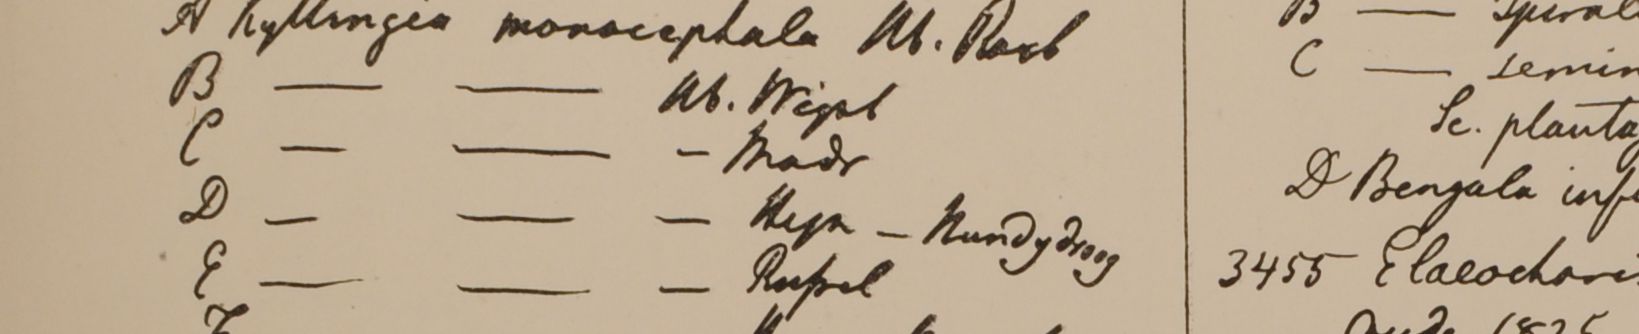 A Kyllingia monocephala Hb. Roxb
B — — Hb. Wight
C — — — Madr
D — — — Heyn — Nundydroog
E — — — Russel
F
B — spiral
C — semin
Sc. planta
D Bengala infe
3455 Elaeochari
1825